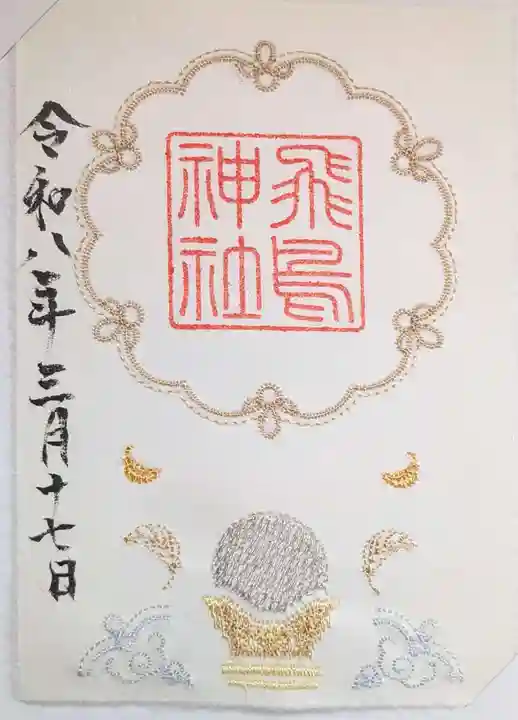 飛鳥
神社
令和八年三月十七日